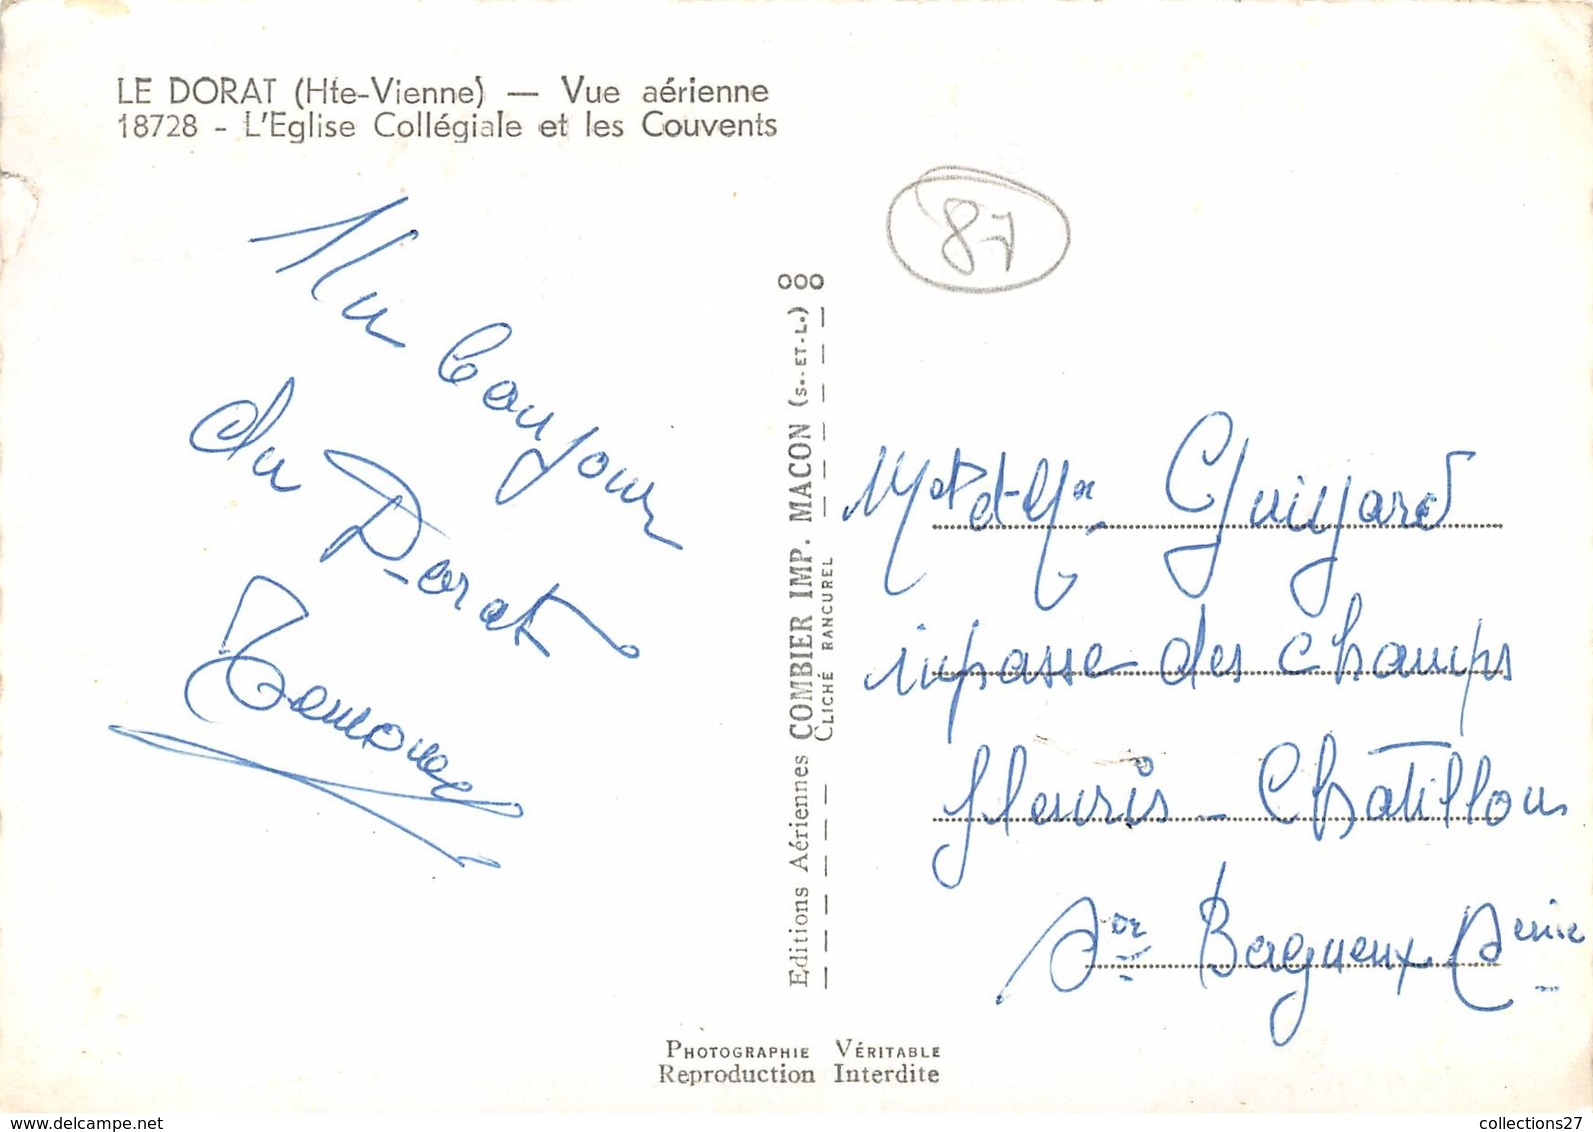 LE DORAT (Hte-Vienne) — Vue aérienne
18728 - L'Eglise Collégiale et les Couvents
87
Un bonjour
du Dorat
Editions Aériennes COMBIER IMP. MACON (S.-ET-L.)
CLICHÉ RANCUREL
Mr et Mme Guiyard
impasse des champs
fleuris - Chatillon
Sous Bagneux Seine
PHOTOGRAPHIE VÉRITABLE
Reproduction Interdite
www.delcampe.net
collections27